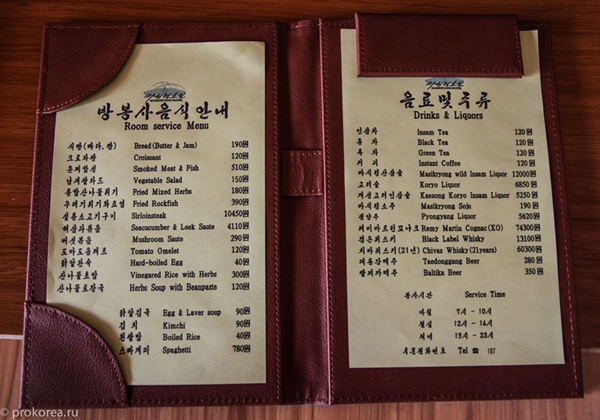 방봉사음식안내
Room service Menu
식빵(빠다, 쨤) Bread(Butter & Jam) 190원
크로와쌍 Croissant 120원
훈제방성 Smoked Meat & Fish 510원
남새쌀라드 Vegetable Salad 150원
종합산나물튀기 Fried Mixed Herbs 180원
우레기튀기 Fried Rockfish 390원
설통소고기구이 Sirloinsteak 10450원
해삼파볶음 Seacucumber & Leek Saute 4110원
버섯볶음 Mushroom Saute 290원
도마도 Tomato Omelet 120원
닭알완숙 Hard-boiled Egg 40원
산나물초밥 Vinegared Rice with Herbs 300원
산나물토장국 Herbs Soup with Beanpaste 120원
닭알김국 Egg & Laver soup 90원
김치 Kimchi 90원
흰쌀밥 Boiled Rice 40원
스빠게띠 Spaghetti 780원
음료 및 주류
Drinks & Liquors
인삼차 Insam Tea 120원
홍차 Black Tea 120원
록차 Green Tea 120원
커피 Instant Coffee 120원
마식령산삼술 Masikryong wild Insam Liquor 12000원
고려술 Koryo Liquor 6850원
개성고려인삼술 Kaesong Koryo Insam Liquor 5250원
마식령소주 Masikryong Soju 190원
평양주 Pyongyang Liquor 5620원
레미마르틴꼬냐크 Remy Martin Cognac(XO) 74300원
검은위스키 Black Label Whisky 13100원
씨바위스키(21년) Chivas Whisky(21years) 60300원
대동강맥주 Taedonggang Beer 280원
발찌까맥주 Baltika Beer 350원
봉사시간 Service Time
아침 7시 - 10시
점심 12시 - 14시
저녁 18시 - 23시
주문전화번호 Tel ☎ 157
© prokorea.ru